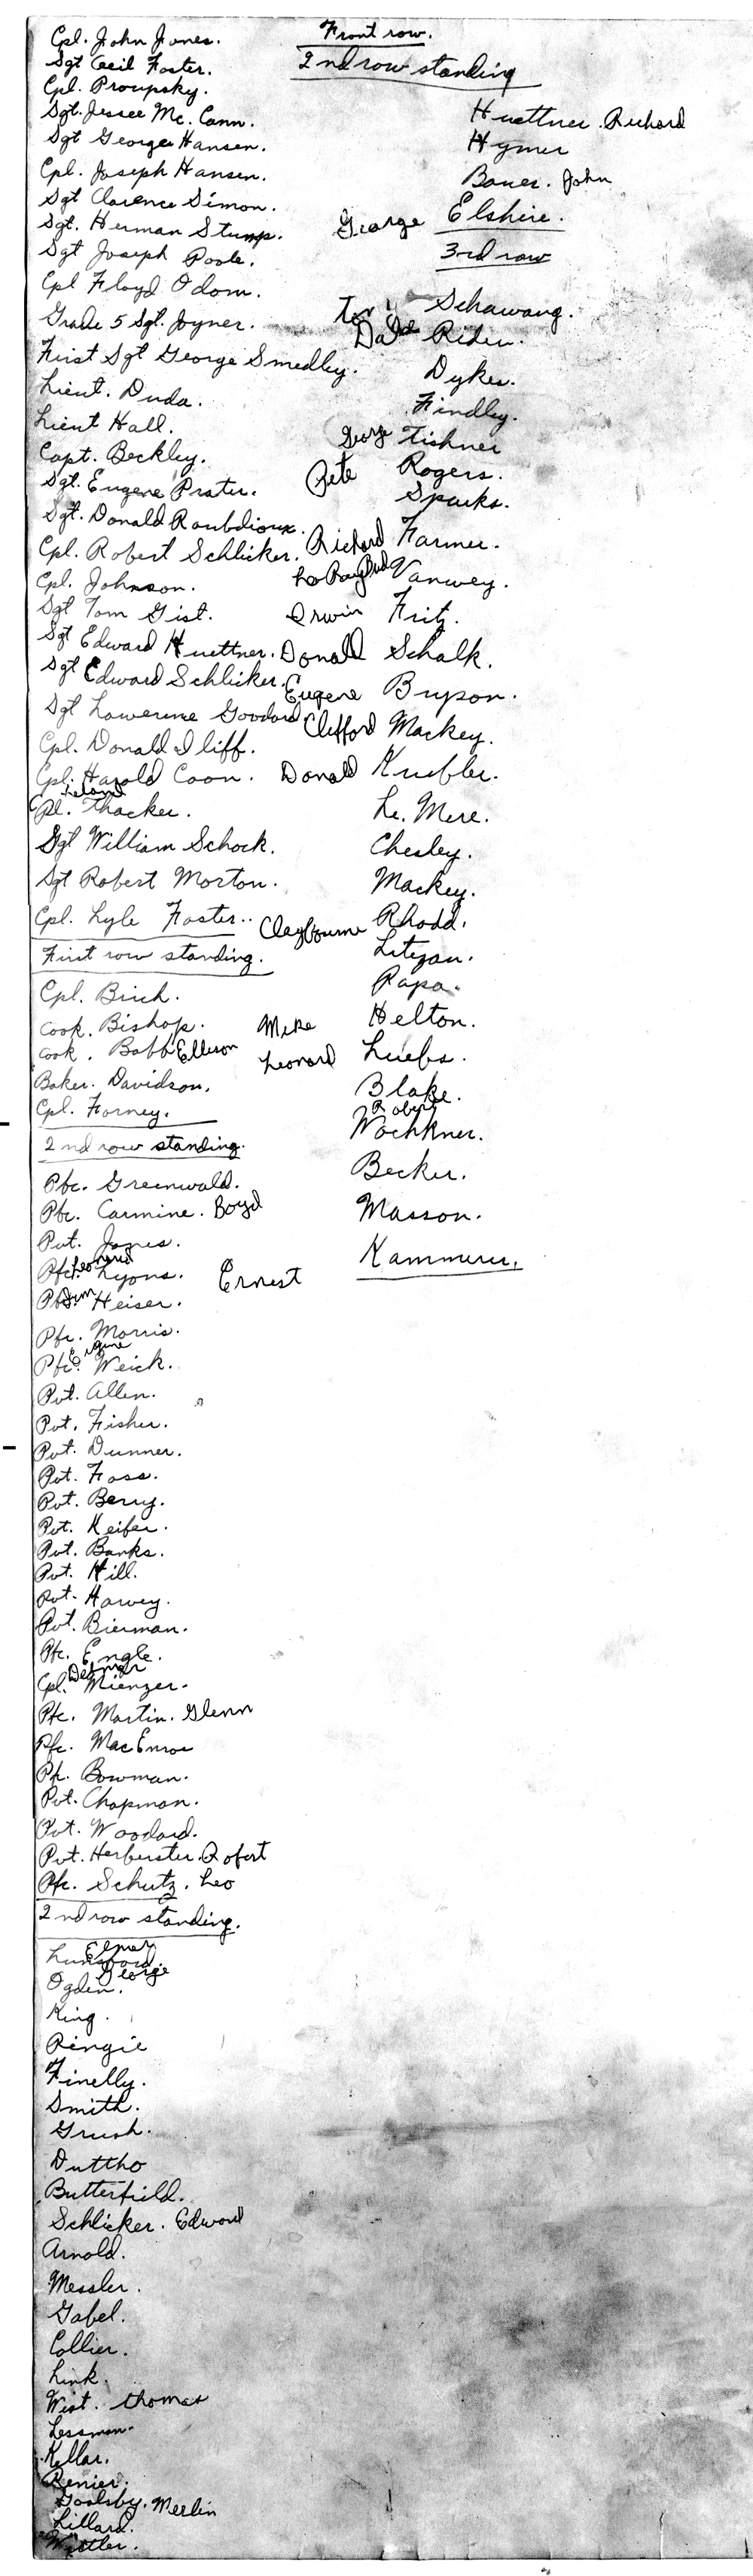 Front row.
Cpl. John Jones.
Sgt Cecil Foster.
Cpl. Proupsky.
Sgt. Jessee Mc. Cann.
Sgt George Hansen.
Cpl. Joseph Hansen.
Sgt Clarence Simon.
Sgt. Herman Stump.
Sgt Joseph Poole.
Cpl Floyd Odom.
Grade 5 Sgt. Joyner.
First Sgt George Smedley.
Lieut. Duda.
Lieut Hall.
Capt. Beckley.
Sgt. Eugene Prater.
Sgt. Donald Roubdioux.
Cpl. Robert Schlicker.
Cpl. Johnson.
Sgt Tom Gist.
Sgt Edward Huettner.
Sgt Edward Schlicker.
Sgt Lawerence Goodard
Cpl. Donald Iliff.
Cpl. Harold Coon.
Cpl. Leland Thacker.
Sgt William Schock.
Sgt Robert Morton.
Cpl. Lyle Foster..
First row standing.
Cpl. Birch.
Cook. Bishop.
Cook. Babb Ellison
Baker. Davidson.
Cpl. Forney.
2nd row standing.
Pfc. Greenwald.
Pfc. Carmine. Boyd
Pvt. Jones.
Pfc. Leonard Lyons.
Jim Heiser.
Pfc. Morris.
Pfc. Eugene Weick.
Pvt. Allen.
Pvt. Fisher.
Pvt. Dunner.
Pvt. Foss.
Pvt. Berry.
Pvt. Keifer.
Pvt. Banks.
Pvt. Hill.
Pvt. Harvey.
Pvt. Bierman.
Pfc. Engle.
Cpl. Delmar Mienzer.
Pfc. Martin. Glenn
Pfc. MacEnroe
Pfc. Bowman.
Pvt. Chapman.
Pvt. Woodard.
Pvt. Herberster. Robert
Pfc. Schutz. Leo
2nd row standing.
Elmer Lunsford.
Ogden. George
King.
Ringie
Finelly.
Smith.
Grush.
Duttho
Butterfield.
Schlicker. Edward
Arnold.
Messler.
Gabel.
Collier.
Link.
Wist. Thomas
Lessman.
Kellar.
Renier.
Goolsby. Merlin
Lillard.
2nd row standing
Huettner. Richard
Hymer
Bauer. John
George Elshire.
3rd row
Schawang.
Dale Riden.
Dykes.
Findley.
George Tishner
Pete Rogers.
Sparks.
Richard Farmer.
LeRoy Bud Vanwey.
Irwin Fritz.
Donald Schalk.
Eugene Bryson.
Clifford Mackey.
Donald Kuebler.
Le. Mere.
Chesley.
Mackey.
Claybourne Rhodd.
Litzan.
Papa.
Mike Helton.
Leonard Luebs.
Blake.
Robert Wochkner.
Becker.
Masson.
Ernest Kammerer.